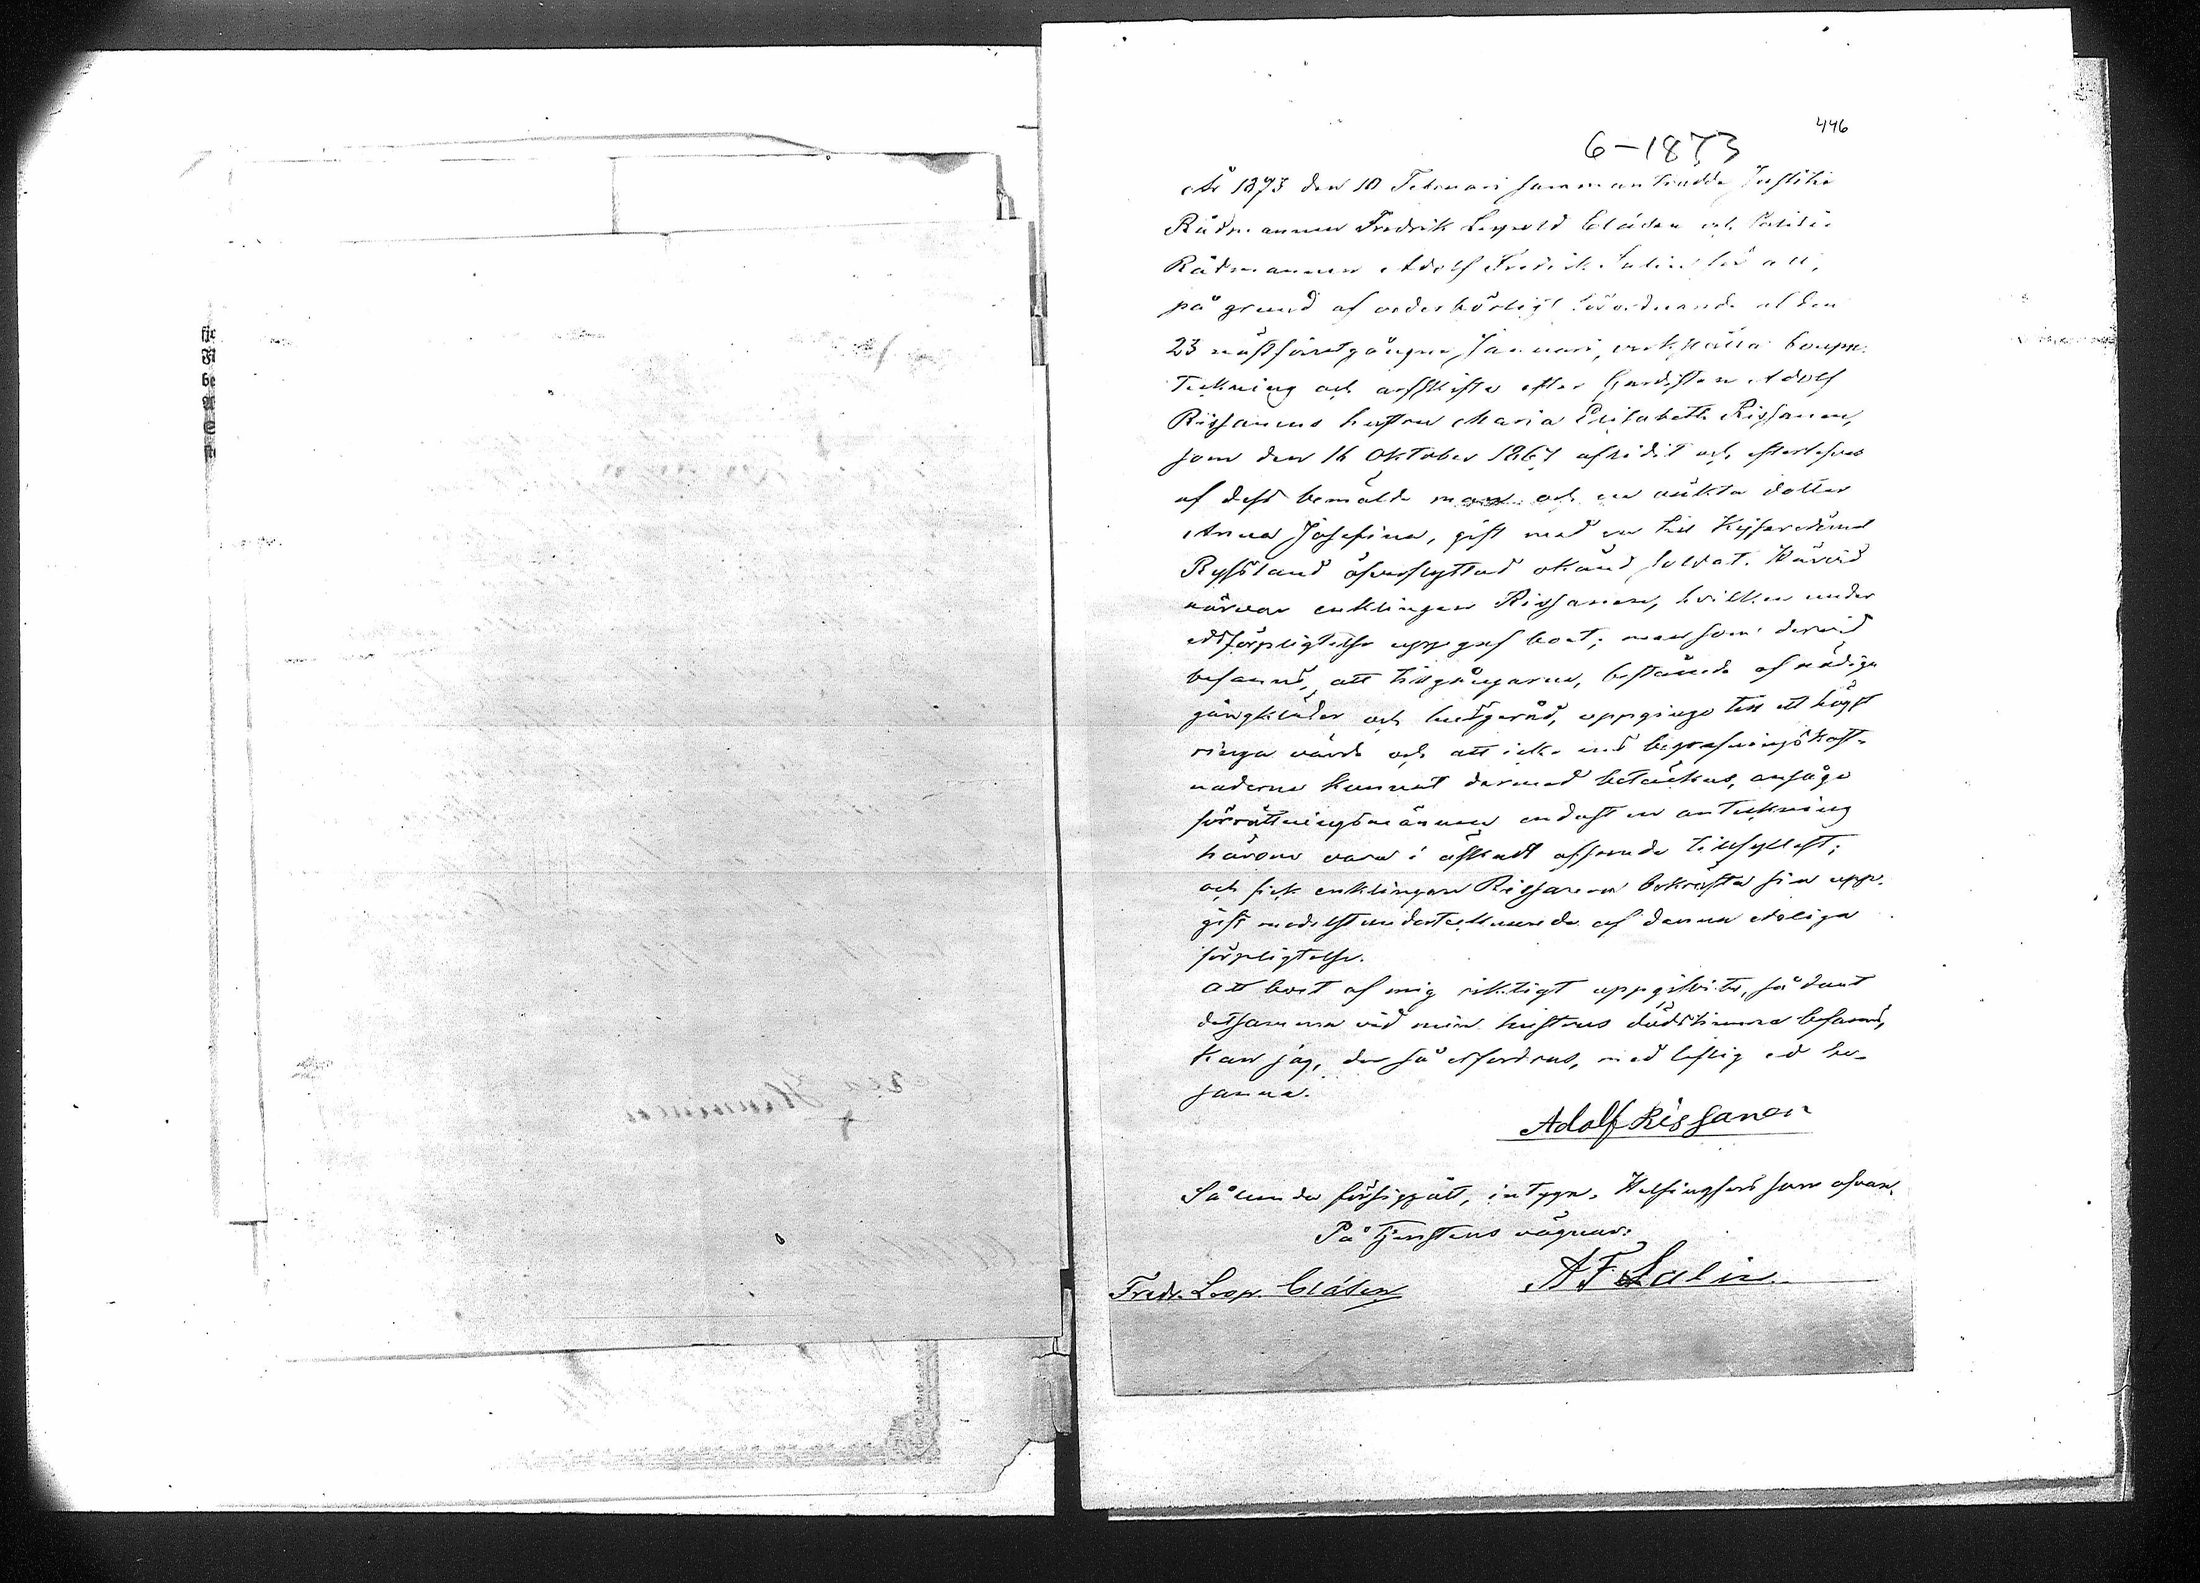 446
6-1873
År 1873 den 10 Februari sammanträdde Justitie
Rådmannen Fredrik Leopold Clásen och Politie
Rådmannen Adolf Fredrik Salin för att,
på grund af vederbörligt förordnande af den
23 nästförutgångne Januari, verkställa boupp-
teckning och arfskifte efter Gardisten Adolf
Rissanens hustru Maria Elisabeth Rissanen,
som den 16 Oktober 1867 aflidit och efterlefves
af dess bemälde man och en oäkta dotter
Anna Josefina, gift med en till Kejsaredömet
Ryssland öfverflyttad okänd soldat. Härvid
närvar enklingen Rissanen, hvilken under
edsförpligtelse uppgaf boet; men som dervid
befanns, att tillgångarne, bestående af nödiga
gångkläder och husgeråd, uppgingo till ett högst
ringa värde och att icke ens begrafningskost-
naderna kunnat dermed betäckas, ansågo
förrättningsmännen endast en anteckning
härom vara i afseende tillfyllest;
och fick enklingen Rissanen bekräfta sin upp-
gift medelst undertecknande af denna edeliga
förpligtelse.
Att boet af mig riktigt uppgifvits, sådant
detsamma vid min hustrus dödstimma befanns,
kan jag, der så erfordras, med liflig ed be-
sanna.
Adolf Rissanen
Sålunda försiggått, intyga, Helsingfors som ofvan.
På tjenstens vägnar:
Fredr. Leop. Clásen
A F Salin